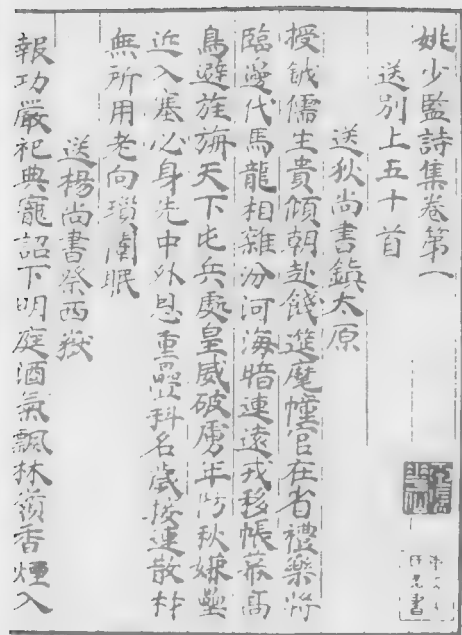 姚少監詩集卷第一
送別上五十首
送狄尚書鎮太原
授鉞儒生貴傾朝赴餞筵麾幢官在省禮樂將
臨邊代馬龍相雜汾河海暗連遠戎移帳幕高
鳥避旌旃天下屯兵處皇威破虜年防秋嫌壘
近入塞必身先中外恩重疊科名歲接連散材
無所用老向瑣闈眠
送楊尚書祭西嶽
報功嚴祀典寵詔下明庭酒氣飄林嶺香煙入